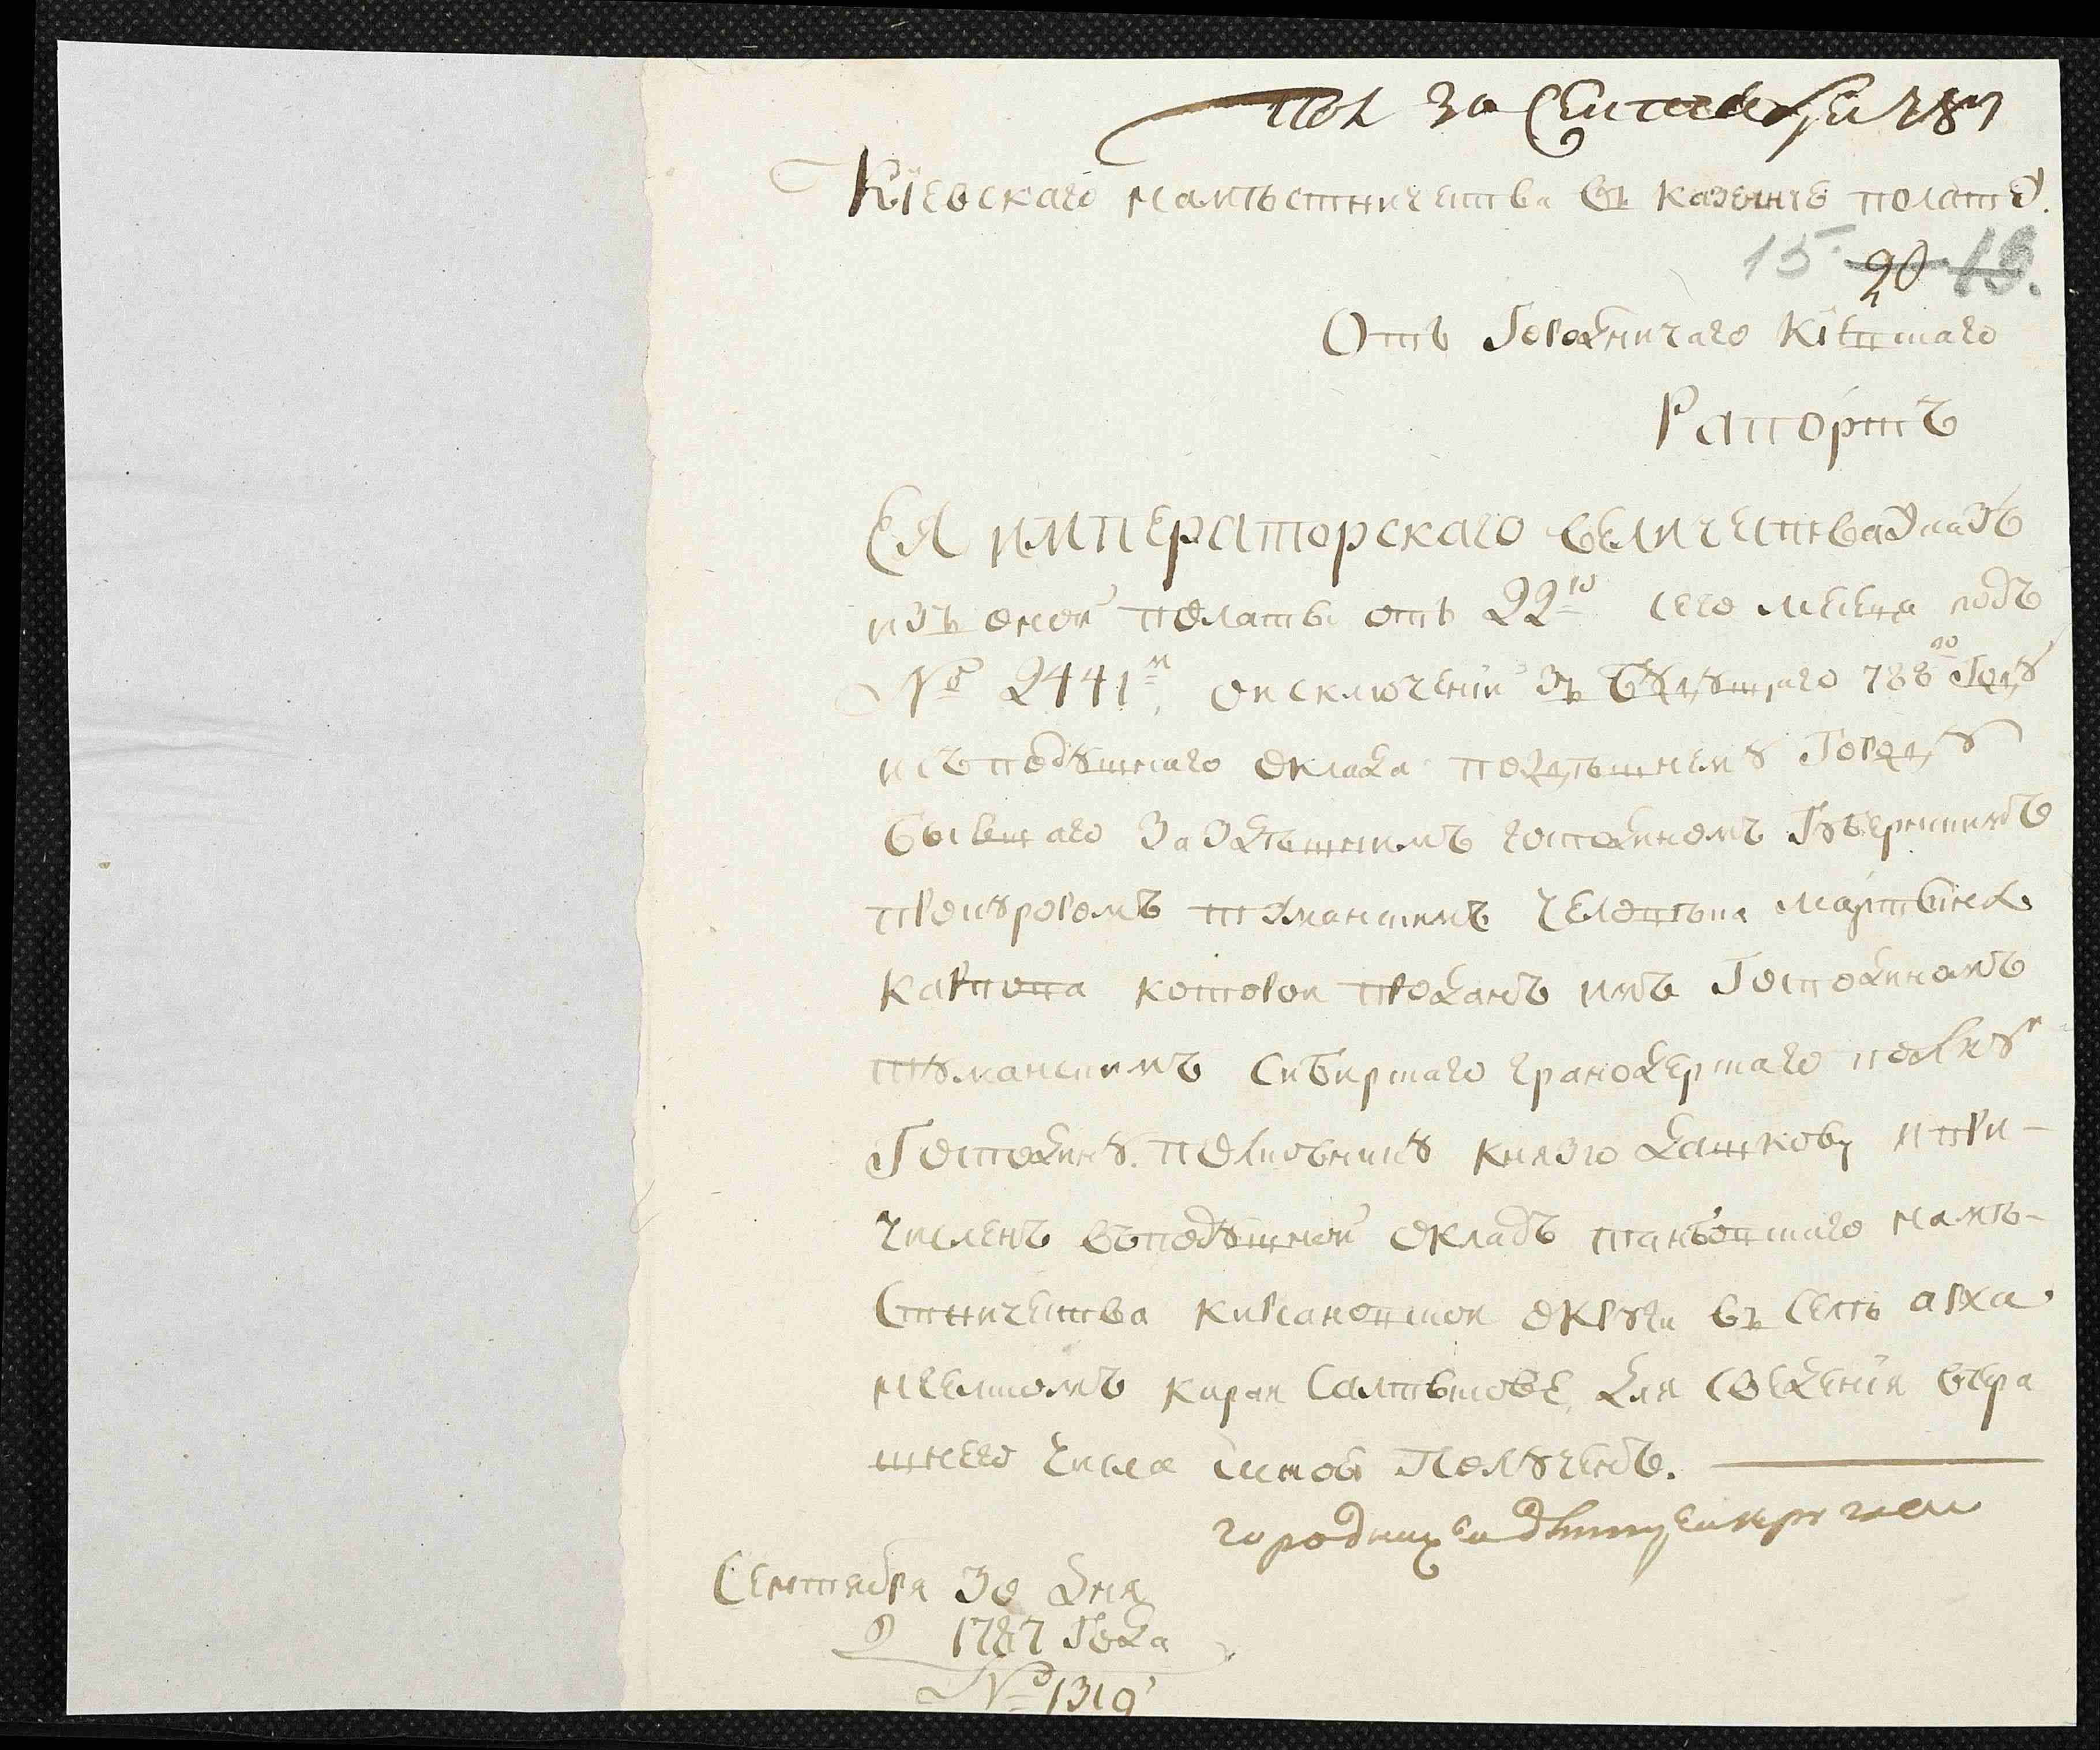 пол 30 Сентября 787
Кіевскаго намѣстничества въ казенне полате.
15. 20 19.
Отъ Городничаго Кіевскаго
Рапортъ
Ея императорскаго величества указъ
изъ оной полаты отъ 22го сего месеца подъ
№ 2441м о исключении зъ будущаго 788го году
исъ подушнаго оклада по здѣшнему городу
бывшаго за здѣшнимъ господиномъ губернскимъ
прокуроромъ туманскимъ человѣка мартына
карпова которой проданъ имъ господиномъ
туманскимъ сибирскаго гранодерскаго полку
господину полковнику князю дашкову и при-
численъ въ подушной окладъ танбовскаго намѣ-
стничества кирсановской округи въ селѣ арха
нгелскомъ караи салтыкове, для сведения втера
шнего числа мною полученъ.
городничей
Сентября 30 дня
1787 года
№ 1319